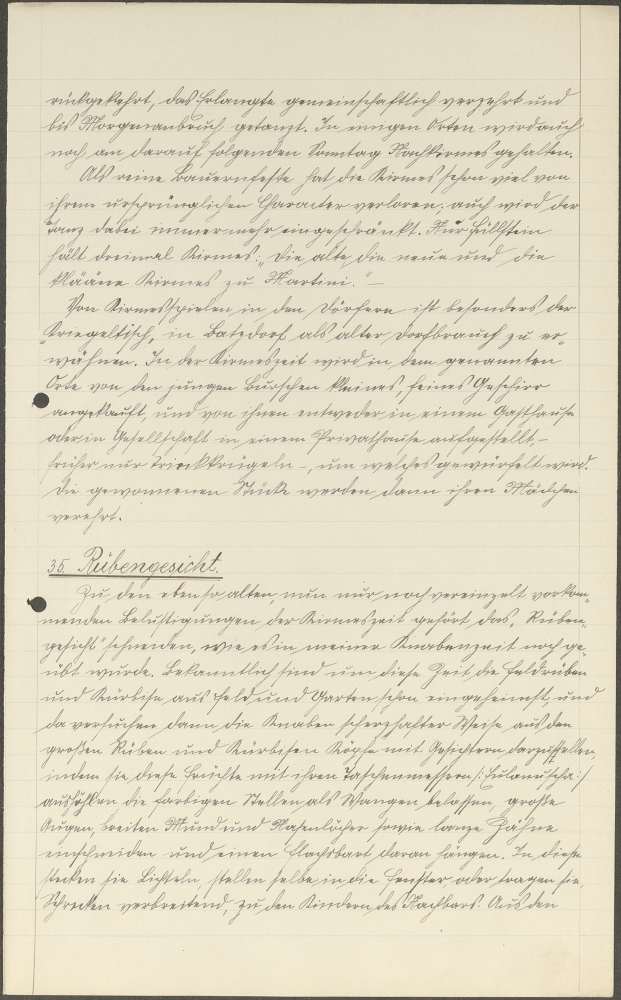 rückgekehrt, das Erlangte gemeinschaftlich verzehrt und
bis Morgenanbruch getanzt. In einigen Orten wird auch
noch am darauf folgenden Sonntag Nachkirmes gehalten.
Als reine Bauernfeste hat die Kirmes schon viel von
ihrem ursprünglichen Character verloren. auch wird der
Tanz dabei immermehr eingeschränkt. Nur Hillstein
hält dreimal Kirmes: „die alte, die neue und die
klääne Kirmes zu Martini." –
Von Kirmesspielen in den Dörfern ist besonders der
in Batzdorf als alter Dorfbrauch zu er„
wähnen. In der Kirmeszeit wird in dem genannten
Orte von den jungen Burschen kleines, feines Geschirr
angekauft, und von ihnen entweder in einem Gasthause
oder in Gesellschaft in einem Privathause aufgestellt, –
früher nur Trinkkrügeln –, um welches gewürfelt wird.
Die gewonnenen Stücke werden dann ihren Mädchen
verehrt.
35. Rübengesicht.
Zu den ebenso alten, nun nur noch vereinzelt vorkom„
menden Belustigungen der Kirmeszeit gehört das „Rüben„
gesicht" schneiden, wie es in meiner Knabenzeit noch ge„
übt wurde. Bekanntlich sind um diese Zeit die Feldrüben
und Kürbise, aus Feld und Garten, schon eingeheimst, und
da versuchen dann die Knaben scherzhafter Weise aus den
großen Rüben und Kürbisen Köpfe mit Gesichtern darzustellen,
indem sie diese Früchte mit ihren Taschenmessern
aushöhlen die farbigen Stellen als Wangen belassen, große
Augen, breiten Mund und Nasenlöcher sowie lange Zähne
einschneiden und einen Flachsbart daran hängen. In diese
stecken sie Lichteln, stellen selbe in die Fenster oder tragen sie,
Schrecken verbreitend, zu den Kindern des Nachbars. Aus den